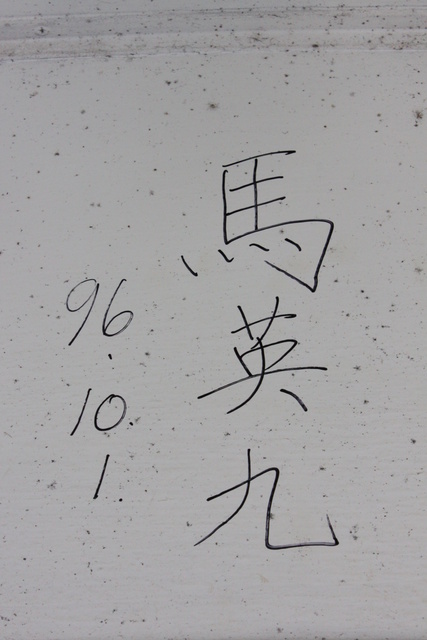 馬英九
96.
10.
1.